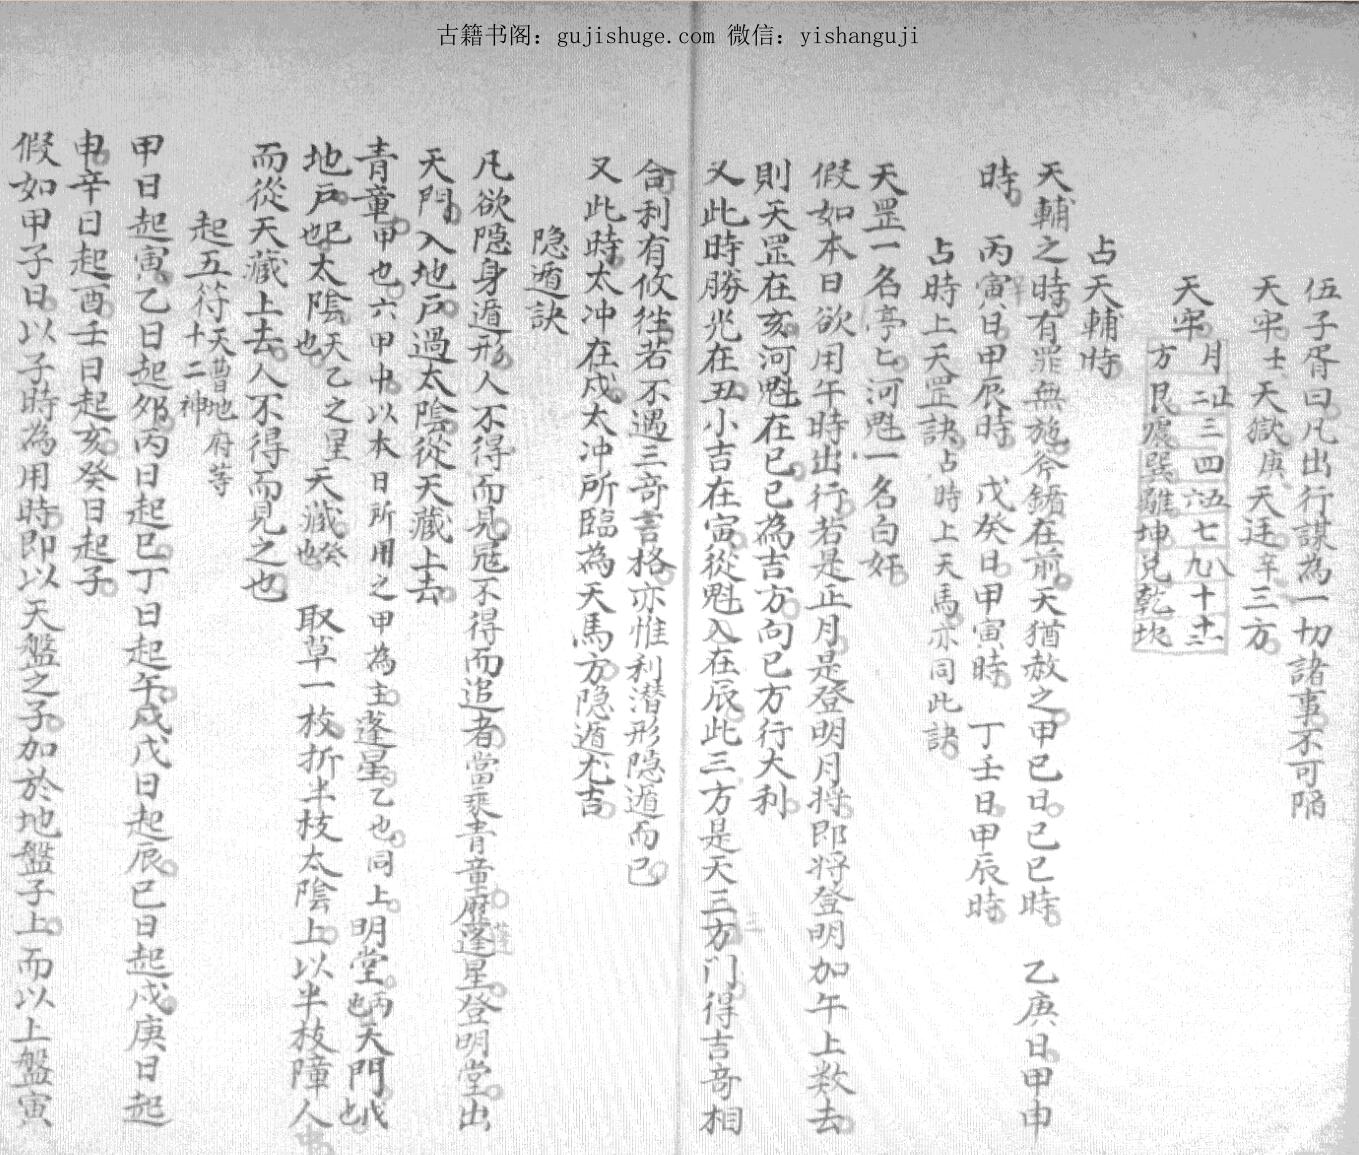 古籍书阁：gujishuge.com 微信：yishanguji
伍子胥曰凡出行謀為一切諸事不可陷
天牢壬天獄庚天廷辛三方
天牢
月 正二 三 四 五六 七 八九 十 十一十二
方 艮 震 巽 離 坤 兌 乾 坎
占天輔時
天輔之時有罪無施斧鑕在前天猶赦之甲已日己巳時 乙庚日甲申
時 丙寅日甲辰時 戊癸日甲寅時 丁壬日甲辰時
占時上天罡訣占時上天馬亦同此訣
天罡一名亭亡河魁一名白奸
假如本日欲用午時出行若是正月是登明月将即将登明加午上数去
則天罡在亥河魁在巳巳為吉方向巳方行大利
又此時勝光在丑小吉在寅從魁入在辰此三方是天三方门得吉奇相
合利有攸往若不遇三奇吉格亦惟利潜形隐遁而已
又此時太冲在戌太冲所臨為天馬方隐遁尤吉
隐遁訣
凡欲隐身遁形人不得而見冦不得而追者當乘青童歷蓬星登明堂出
天門入地戸過太陰從天藏上去
青童甲也六甲中以本日所用之甲為主蓬星乙也同上明堂丙也天門戊也
地戸己也太陰也天乙之星 天藏癸也 取草一枝折半枝太陰上以半枝障人中
而從天藏上去人不得而見之也
起五符天曹地府等十二神
甲日起寅乙日起夘丙日起巳丁日起午戌戊日起辰巳日起戌庚日起
申辛日起酉壬日起亥癸日起子
假如甲子日以子時為用時即以天盤之子加於地盤子上而以上盤寅